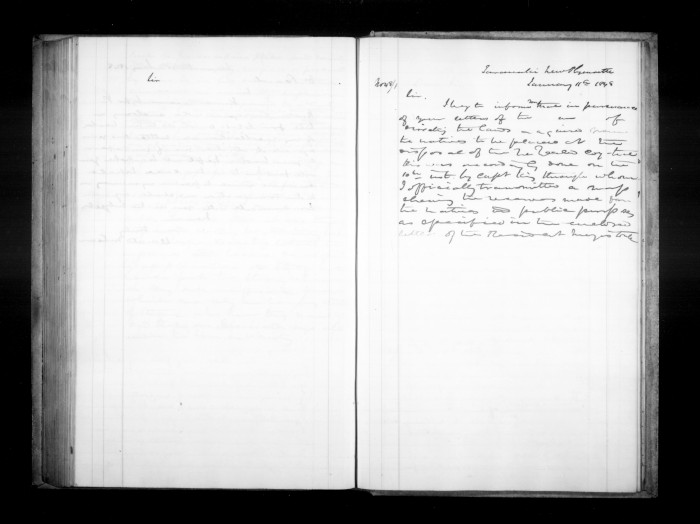 Sir
Taranaki New Plymouth
January 11th 1848
No 48/1
Sir,
I beg to inform that in pursuance
of your letters of the of
the lands acquired
the natives to be placed at the
disposal of the N Zealand Coy that
this was accordingly done on the
10th inst by Capt King through whom
I officially transmitted a map
shewing the reserves made for
the natives public purposes
as specified in the enclosed
letter of the Resident Magistrate